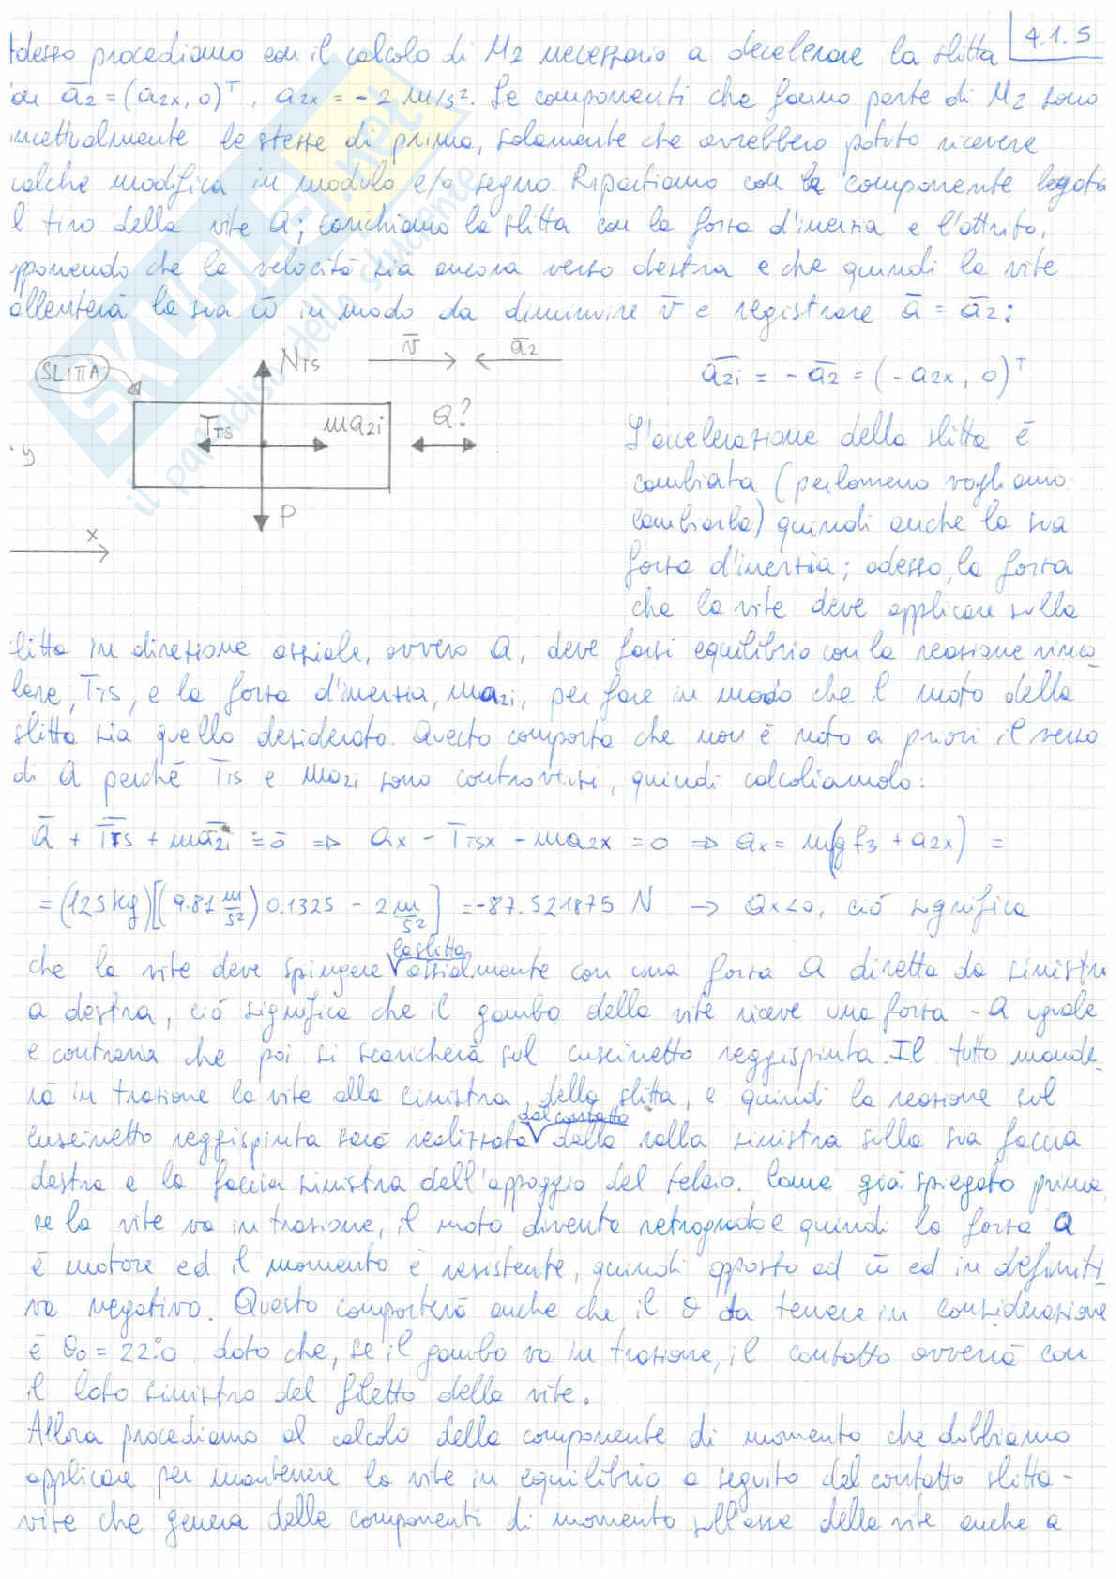 4.1.5
adesso procediamo con il calcolo di M2 necessario a decelerare la slitta
con a̅2 = (a2x, 0)ᵀ, a2x = -2 m/s². Le componenti che fanno parte di M2 sono
le stesse di prima, solamente che avrebbero potuto ricevere
qualche modifica in modulo e/o segno. Ripartiamo con la componente legata
al tiro della vite Q; carichiamo la slitta con la forza d'inerzia e l'attrito,
supponendo che la velocità sia ancora verso destra e che quindi la vite
rallenterà la sua ω̅ in modo da diminuire v̅ e registrare a̅ = a̅2:
SLITTA
NTS
v̅
a̅2
a̅2i = - a̅2 = (-a2x, 0)ᵀ
TTS
ma2i
Q?
y
P
x
L'accelerazione della slitta è
cambiata (perlomeno vogliamo
cambiarla) quindi anche la sua
forza d'inerzia; adesso, la forza
che la vite deve applicare sulla
slitta in direzione assiale, ovvero Q, deve farsi equilibrio con la reazione vinco-
lare, TTS, e la forza d'inerzia, ma2i, per fare in modo che il moto della
slitta sia quello desiderato. Questo comporta che non è noto a priori il verso
di Q perché TTS e ma2i sono controversi, quindi calcoliamolo:
Q̅ + T̅TS + ma̅2i = 0̅ => Qx - TTSx - ma2x = 0 => Qx = m(g f3 + a2x) =
= (125 kg)[(9.81 m/s²) 0.1325 - 2 m/s²] = -87.521875 N → Qx<0, ciò significa
che la vite deve spingere la slitta assialmente con una forza Q diretta da sinistra
a destra, ciò significa che il gambo della vite riceve una forza -Q uguale
e contraria che poi si scaricherà sul cuscinetto reggispinta. Il tutto mande-
rà in trazione la vite alla sinistra della slitta, e quindi la reazione sul
cuscinetto reggispinta sarà realizzata dal contatto della ralla sinistra sulla sua faccia
destra e la faccia sinistra dell'appoggio del telaio. Come già spiegato prima,
se la vite va in trazione, il moto diventa retrogrado e quindi la forza Q
è motore ed il momento è resistente, quindi opposto ad ω̅ ed in definiti-
va negativo. Questo comporterà anche che il θ da tenere in considerazione
è θ0 = 22°.0 dato che, se il gambo va in trazione, il contatto avverrà con
il lato sinistro del filetto della vite.
Allora procediamo al calcolo della componente di momento che dobbiamo
applicare per mantenere la vite in equilibrio a seguito del contatto slitta-
vite che genera delle componenti di momento sull'asse della vite anche a
SKUOLA.net
il paradiso dello studente